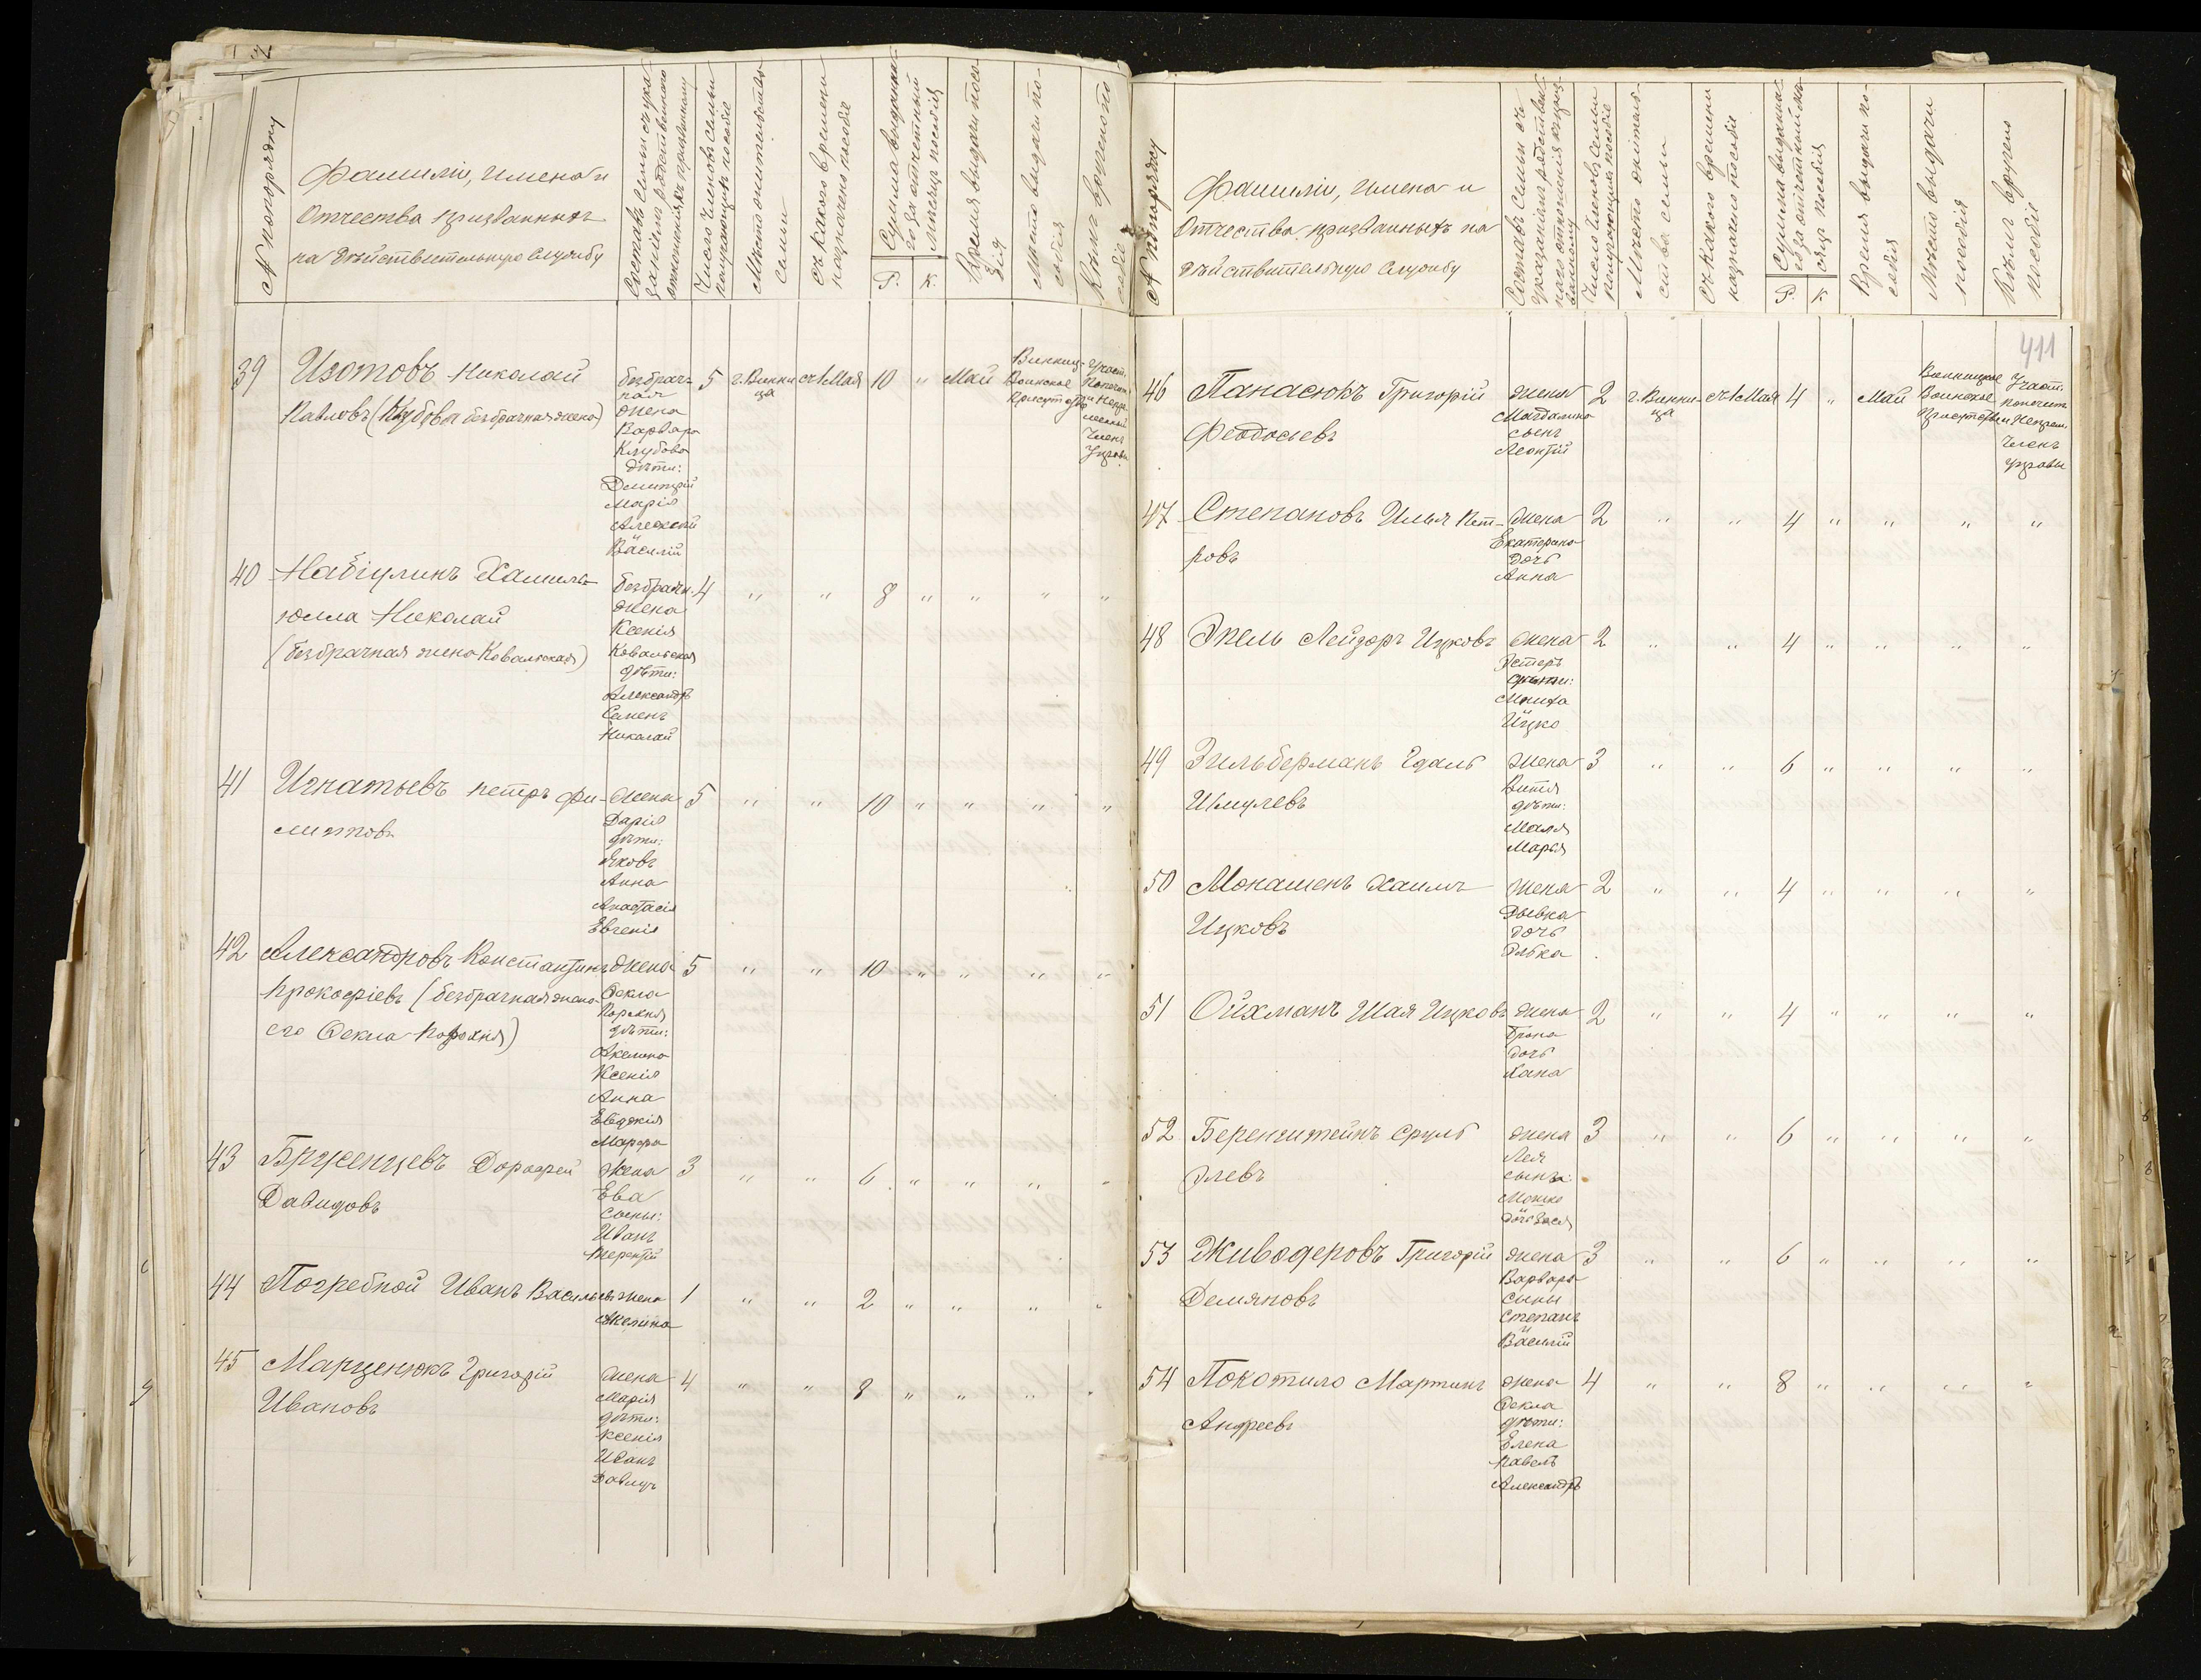 № по порядку
Фамиліи, имена и
Отчества призванныхъ
на дѣйствительную службу
Составъ семьи съ ука-
заніемъ родственнаго
отношенія къ призванному
Число членовъ семьи
получающихъ пособіе
Мѣсто жительства
семьи
Съ какого времени
назначено пособіе
Сумма выданна-
го за отчетный
мѣсяцъ пособія
Р.
К.
Время выдачи посо-
бія
Мѣсто выдачи по-
собія
Кѣмъ вручено по-
собіе
39
Изотовъ Николай
Павловъ (Клубова безбрачная жена)
безбрач-
ная
жена
Варвара
Клубова
дѣти:
Дмитрій
Марія
Алексѣй
и
Василій
5
г. Винни
ца
съ 1 Мая
10
"
Май
Винниц-
Воинское
Присутствіе
Участ.
Попечит.
и Непре-
менный
Членъ
Управы
40
Набіулинъ Хамила-
юлла Николай
(безбрачная жена Ковальская)
безбрачн.
жена
Ксенія
Ковальская
дѣти:
Александръ
Семенъ
Николай
4
"
"
8
"
"
"
"
41
Игнатьевъ Петръ Фи-
липповъ
жена
Дарія
дѣти:
Яковъ
Анна
Анастасія
Евгенія
5
"
"
10
"
"
"
"
42
Александровъ Константинъ
Прокофіевъ (безбрачная жена
его Ѳекла Порохня)
жена
Ѳекла
Порохня
дѣти:
Акелина
Ксенія
Анна
Евдокія
Марфа
5
"
"
10
"
"
"
"
43
Бруженцевъ Дорофей
Давидовъ
жена
Ева
Сыны:
Иванъ
Терентій
3
"
"
6
"
"
"
"
44
Погребной Иванъ Васильевъ
жена
Акелина
1
"
"
2
"
"
"
"
45
Марценюкъ Григорій
Ивановъ
жена
Марія
дѣти:
Ксенія
Иванъ
Давидъ
4
"
"
8
"
"
"
"
411
№ по порядку
Фамиліи, имена и
Отчества призванныхъ на
дѣйствительную службу
Составъ семьи съ
указаніемъ родствен-
наго отношенія къ приз-
ванному
Число членовъ семьи
получающихъ пособіе
Мѣсто житель-
ства семьи
Съ какого времени
назначено пособіе
Сумма выданна-
го за отчетный мѣ-
сяцъ пособія
Р.
К
Время выдачи по-
собія
Мѣсто выдачи
пособія
Кѣмъ вручено
пособіе
46
Панасюкъ Григорій
Феодосіевъ
жена
Магдалина
сынъ
Леонтій
2
г. Винни-
ца
съ 1 Мая
4
"
Май
Винницкое
Воинское
Присутствіе
Участ.
Попечит.
и Непрем.
Членъ
Управы
47
Степановъ Илья Пет-
ровъ
жена
Екатерина
дочь
Анна
2
"
"
4
"
"
"
"
48
Эпель Лейзоръ Ицковъ
жена
Эстеръ
дѣти:
Мониха
и
Ицко
2
"
"
4
"
"
"
"
49
Зильберманъ Гдаль
Шмулевъ
жена
Витя
дѣти:
Маля
Марья
3
"
"
6
"
"
"
"
50
Монашенъ Хаимъ
Ицковъ
жена
Рывка
дочь
Элька
2
"
"
4
"
"
"
"
51
Ойхманъ Шая Ицковъ
жена
Брана
дочь
Хана
2
"
"
4
"
"
"
"
52
Беренштейнъ Сруль
Элевъ
жена
Лея
сынъ:
Мошко
и
дочь Бася
3
"
"
6
"
"
"
"
53
Живодеровъ Григорій
Демяновъ
жена
Варвара
сыны
Степанъ
и
Василій
3
"
"
6
"
"
"
"
54
Покотило Мартинъ
Андреевъ
жена
Ѳекла
дѣти:
Елена
Павелъ
Александръ
4
"
"
8
"
"
"
"